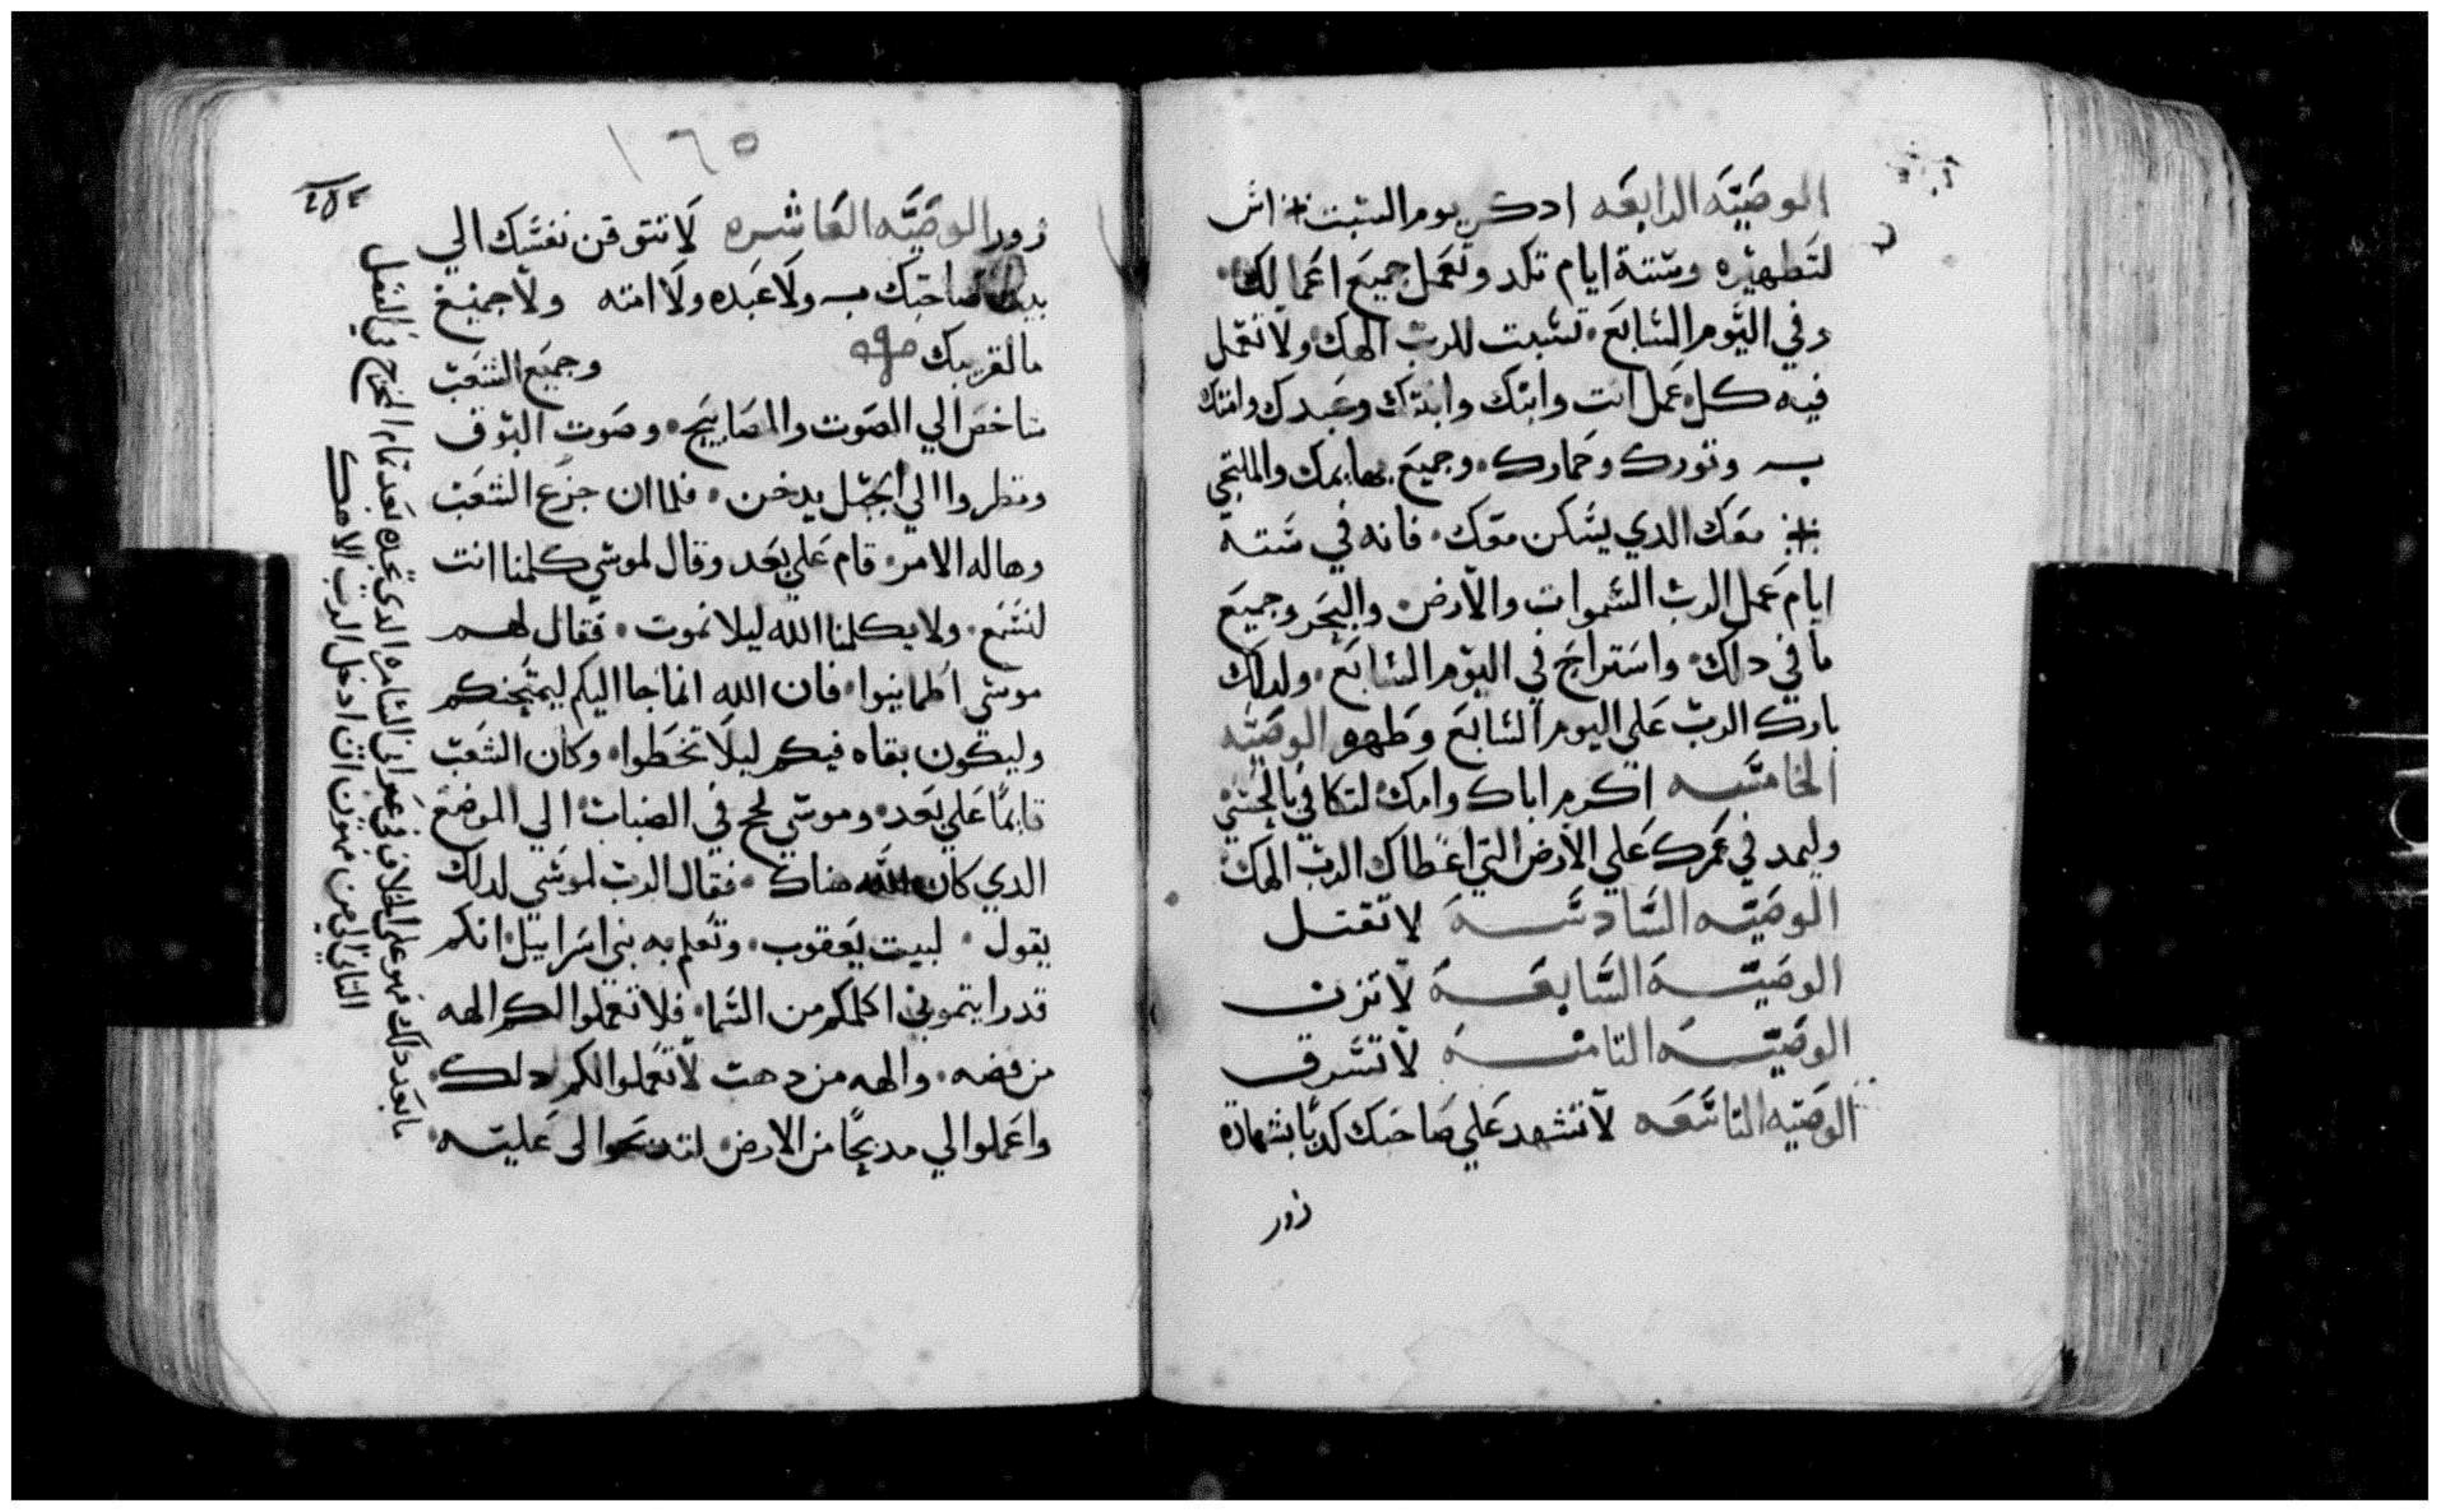 الوصيّه الرابعه ادكر يوم السبت اش
لتطهيره وستة ايام تكد وتعمل جميع اعمالك
وفي اليوم السابع تسبت للرب الهك ولا تعمل
فيه كل عمل انت وابنك وابنتك وعبدك وامتك
وتورك وحمارك وجميع بهايمك والملتجي
معك الدي يسكن معك فانه في ستة
ايام عمل الرب السموات والارض والبحر وجميع
ما في دلك واستراح في اليوم السابع ولدلك
بارك الرب علي اليوم السابع وطهره الوصيه
الخامسه اكرم اباك وامك لتكافي بالحسني
وليمد في عمرك علي الارض التي اعطاك الرب الهك
الوصيّه السادسه لا تقتل
الوصيّه السابعه لا تزن
الوصيّه التامنه لا تسرق
الوصيه التاسعه لا تشهد علي صاحبك كدبا بشهادة
زور
١٦٥
زور الوصيّه العاشره لا تتوقن نفسك الي
بيت صاحبك ولا عبده ولا امته ولا جميع
مالقريبك وجميع الشعب
شاخص الي الصوت والمصابيح وصوت البوق
ونظروا الي الجبل يدخن فلما ان جزع الشعب
وهاله الامر قام علي بعد وقال لموسي كلمنا انت
لنسمع ولا يكلمنا الله ليلا نموت فقال لهم
موسي اطمانيوا فان الله انما جا اليكم ليمتحنكم
وليكون بقاه فيكم ليلا تخطوا وكان الشعب
قايما علي بعد وموسي لحج في الضباب الي الموضع
الدي كان الله هناك فقال الرب لموسي لدلك
يقول لبيت يعقوب وتعلم به بني اسراييل انكم
قد رايتموني اكلمكم من السما فلا تعملوا لكم الهه
من فضه والهه من دهب لا تعملوا لكم دلك
واعملوا لي مدبحا من الارض لتدبحوا لي عليه
ما بعد دلك فهو علي الخلاف في
التاني من